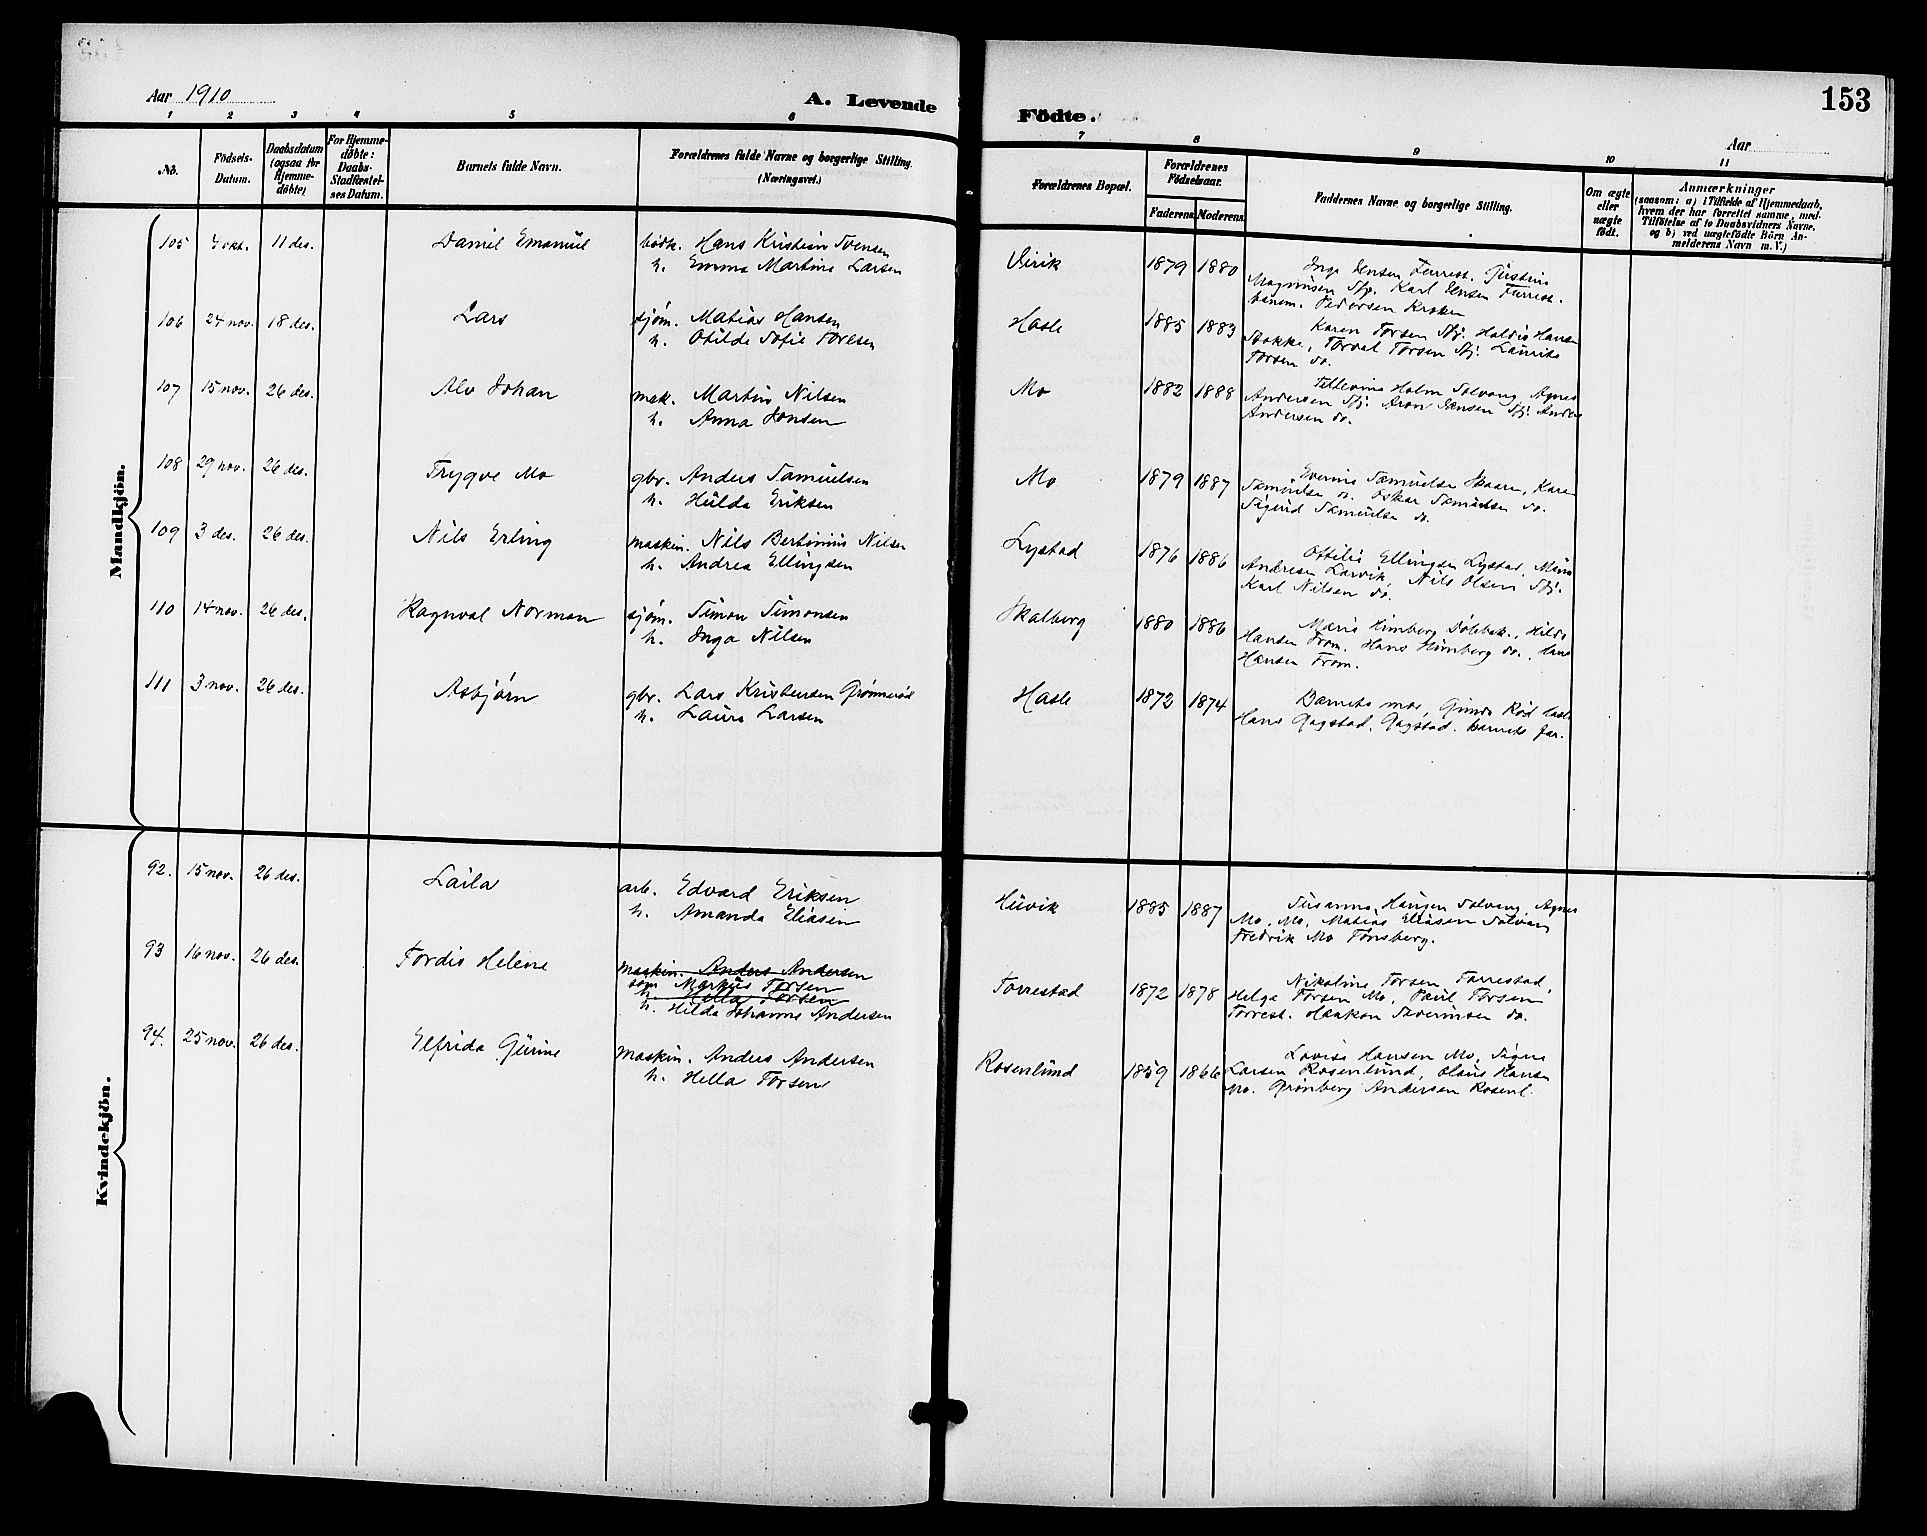 Aar 1910
A. Levende
Födte.
153
Aar
1 2 3 4 5 6 7 8 9 10 11
No.
Födsels-
Datum.
Daabsdatum
(ogsaa for
Hjemme-
döbte)
For Hjemme-
döbte:
Daabs-
Stadfæstel-
ses Datum.
Barnets fulde Navn.
Forældrenes fulde Navne og borgerlige Stilling.
(Næringsvei.)
Forældrenes Bopæl.
Forældrenes
Födselsaar.
Faderens Moderens
Faddernes Navne og borgerlige Stilling.
Om ægte
eller
uægte
födt.
Anmærkninger
(saasom: a) i Tilfælde af Hjemmedaab,
hvem der har forrettet samme, med
Tilföielse af to Daabsvidners Navne,
og b) ved uægtefödte Börn An-
melderens Navn m. V.)
Mandkjön.
105 4 okt. 11 des. Daniel Emanuel bødk. Hans Kristian Svensen
h. Emma Martine Larsen
Virik 1879 1880 Inga Jensen Furrest.
Magnusen Karl Jensen Furrest.
Pedersen Kroken
106 24 nov. 18 des. Lars sjøm. Matias Hansen
h. Otilde Sofie Toresen
Hasle 1885 1883 Karen Torsen Stj. Haldis Hansen
Stokke, Torval Torsen Stj. Laurits
Torsen do.
107 15 nov. 26 des. Alv Johan mek. Martin Nilsen
h. Anna Jonsen
Mo 1882 1888 Holm Solvang, Agnes
Andersen Stj. Aron Jensen Stj. Anders
Andersen do.
108 29 nov. 26 des. Trygve Mo gbr. Anders Samuelsen
h. Hulda Eriksen
Mo 1879 1887 Skaare, Karen
Samuelse do. Oskar Samuelsen do.
Sigurd Samuelse do.
109 3 des. 26 des. Nils Erling maskin. Nils Bertinius Nilsen
h. Andrea Ellingsen
Lystad 1876 1886 Ottilie Ellingsen Lystad,
Andresen Larvik, Nils Olsen Stj.
Karl Nilsen do.
110 14 nov. 26 des. Ragnval Norman sjøm. Simon Simonsen
h. Inga Nilsen
Skalberg 1880 1886 Marie Himberg Hilda
Hansen From, Hans Himberg do., Hans
Hansen From.
111 3 nov. 26 des. Asbjørn gbr. Lars Kristensen Grønnerød
h. Laura Larsen
Hasle 1872 1874 Barnets mor, Gunda Rød Hasle
Hans Gogstad, Gogstad. Barnets far.
Kvindekjön.
92. 15 nov. 26 des. Laila arb. Edvard Eriksen
h. Amanda Eliasen
Huvik 1885 1887 Susanna Haugen Solvang Agnes
Mo, Mo, Matias Eliasen Solvang
Fredrik Mo Tønsberg.
93 16 nov. 26 des. Tordis Helene maskin. Anders Andersen
søm Markus Torsen
h. Hella Torsen
h. Hilda Johanne Andersen
Torrestad 1872 1878 Nikoline Torsen Torrestad,
Helga Torsen Mo, Paul Torsen
Torrest. Haakon Severinsen do.
94. 25 nov. 26 des. Elfrida Gurine maskin. Anders Andersen
h. Hella Torsen
Rosenlund 1859 1866 Lovise Hansen Mo, Signe
Larsen Rosenlund, Olaus Hansen
Mo. Grønberg Andersen Rosenl.